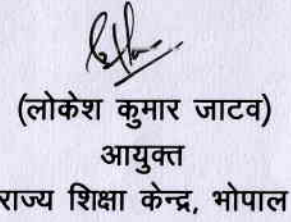 (लोकेश कुमार जाटव)
आयुक्त
राज्य शिक्षा केन्द्र, भोपाल